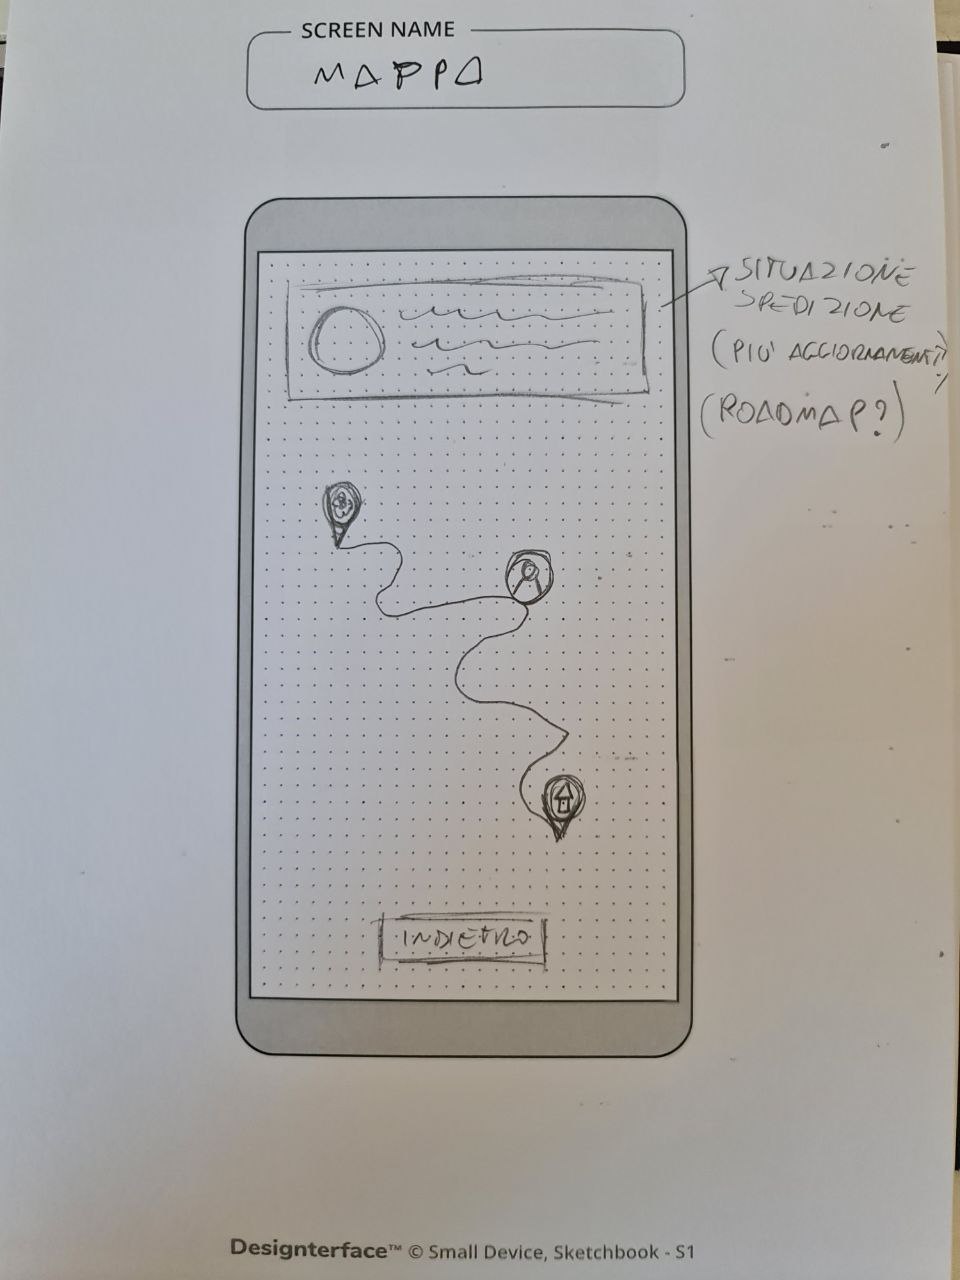 SCREEN NAME
MAPPA
SITUAZIONE
SPEDIZIONE
(PIÙ AGGIORNAMENTI)
(ROADMAP?)
INDIETRO
Designterface™ © Small Device, Sketchbook - S1